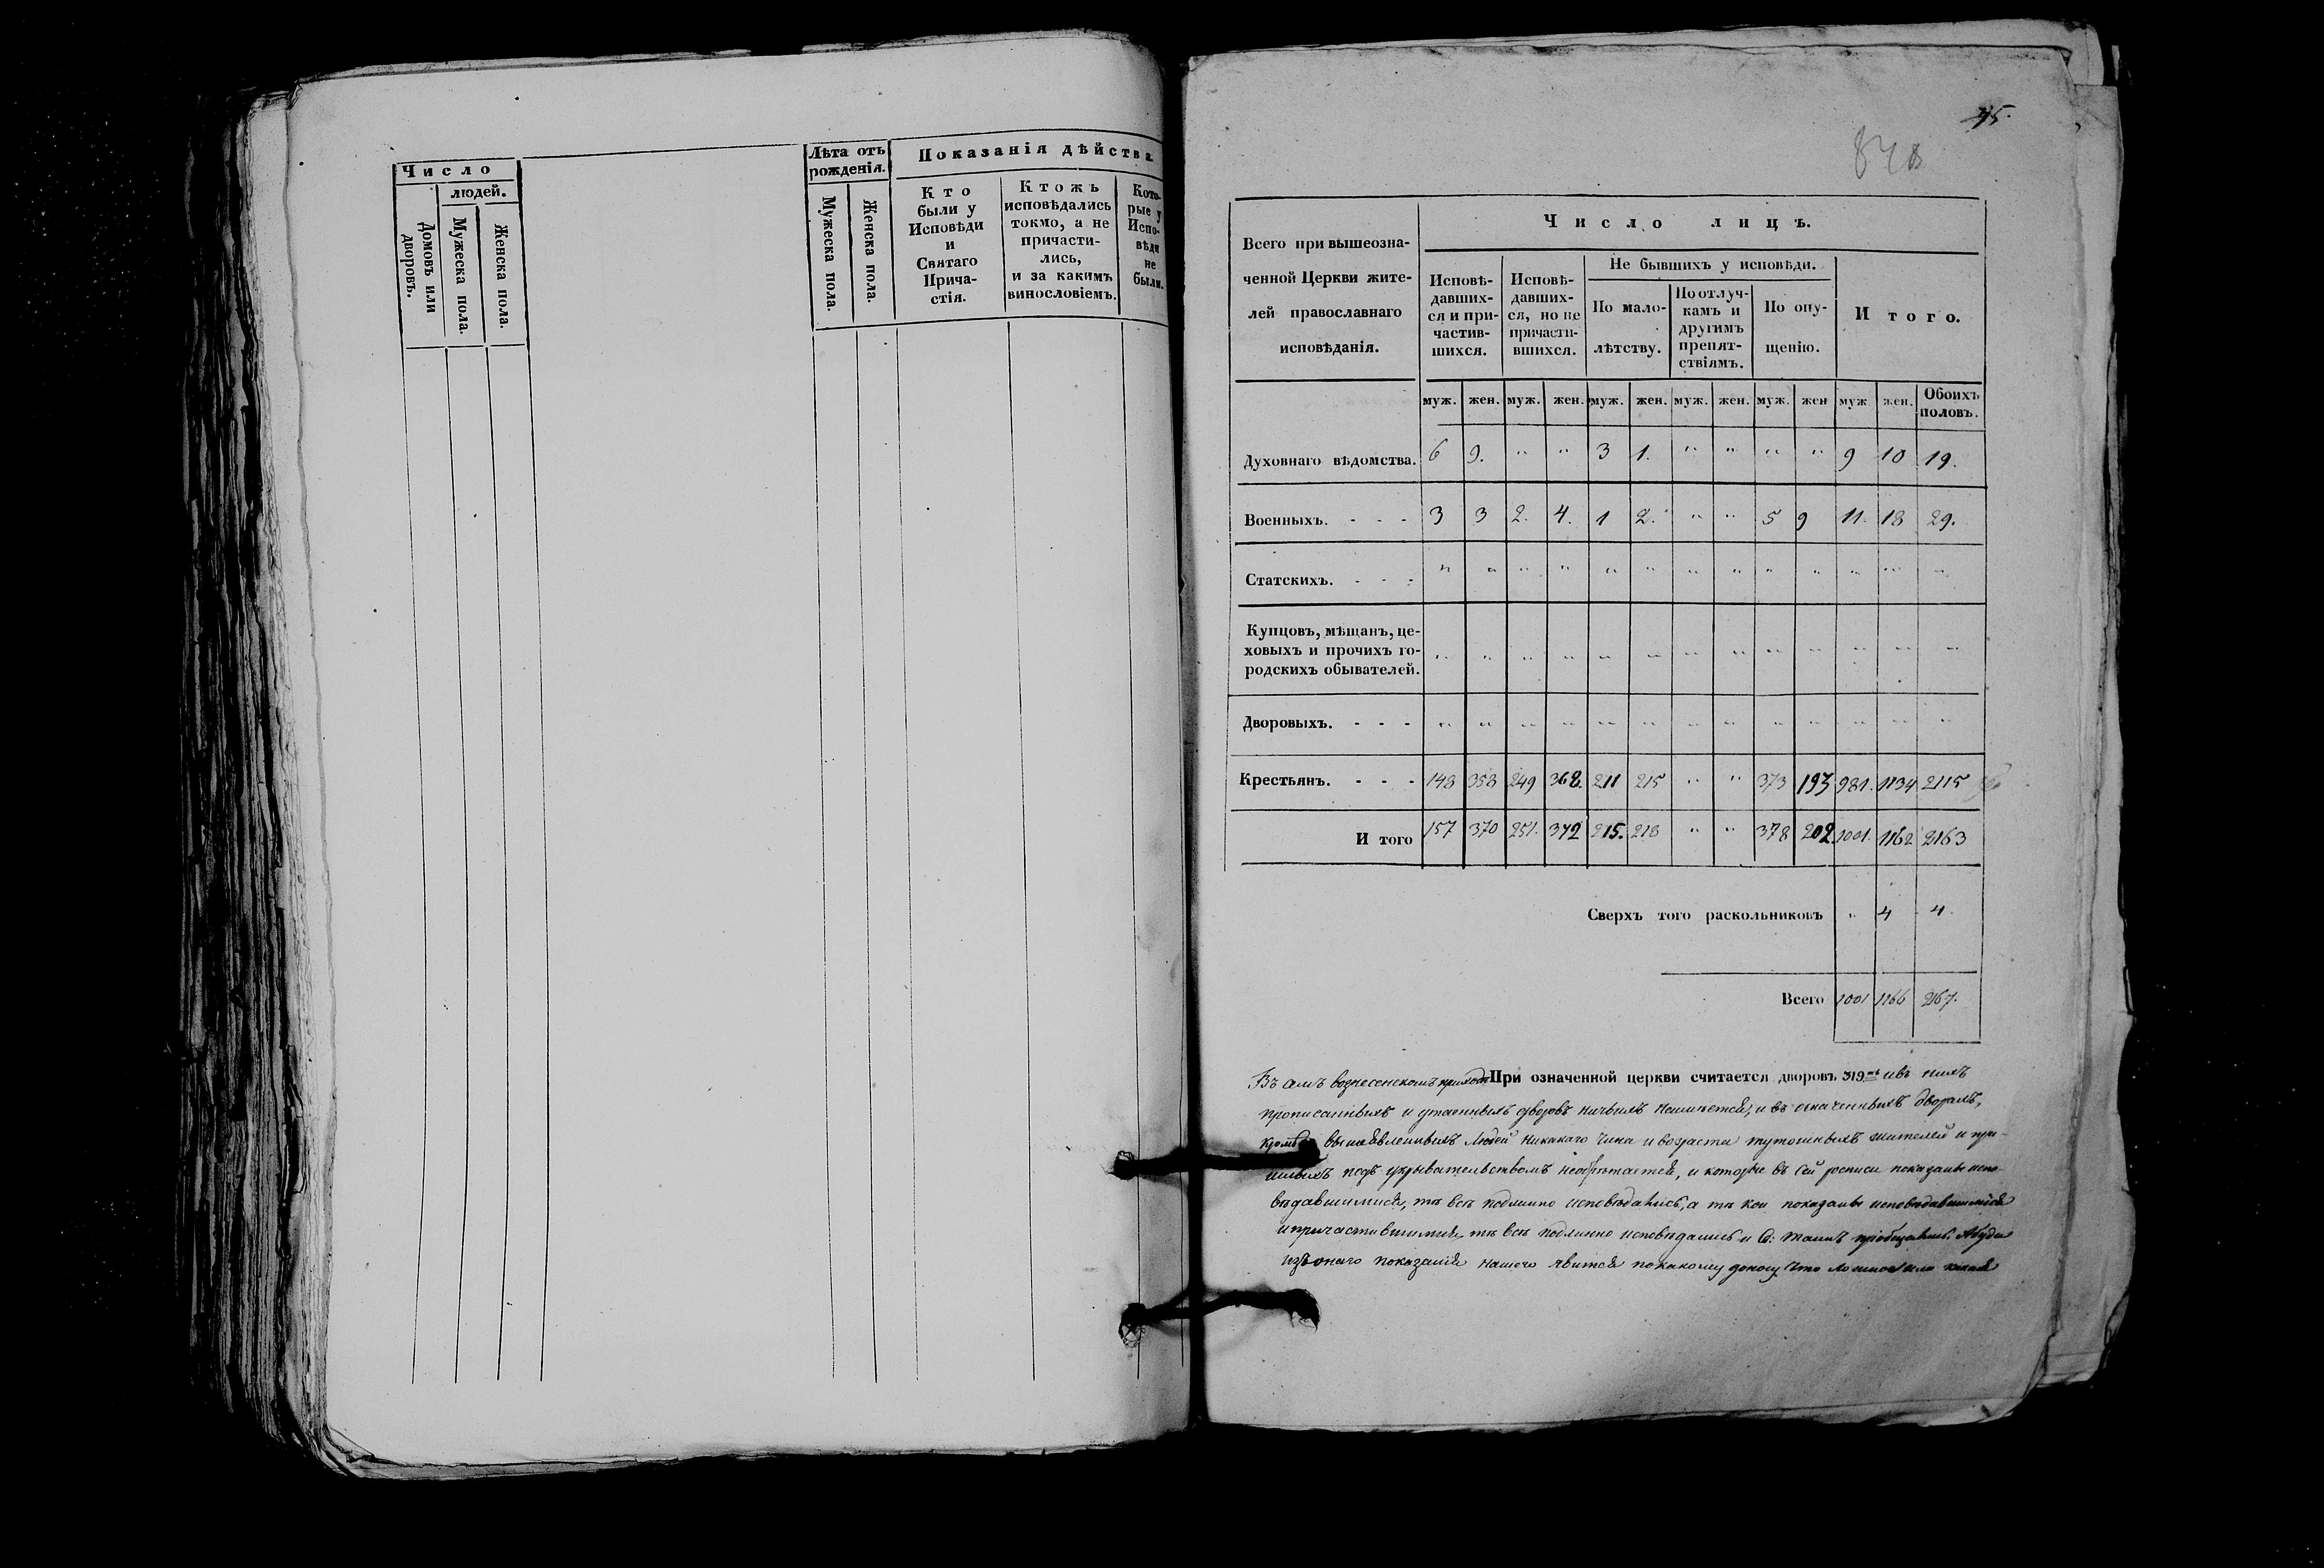 Число
людей.
Домовъ или дворовъ.
Мужеска пола.
Женска пола.
Лѣта отъ рожденія.
Мужеска пола.
Женска пола.
Показанія дѣйства.
Кто были у Исповѣди и Святаго Прича-стія.
Ктожъ исповѣдались токмо, а не причасти-лись, и за какимъ винословіемъ.
Кото-рые у Испо-вѣди не были.
45.
Всего при вышеозна-
ченной Церкви жите-
лей православнаго
исповѣданія.
Число лицъ.
Исповѣ-давших-ся и при-частив-шихся.
Исповѣ-давших-ся, но не причасти-вшихся.
Не бывшихъ у исповѣди.
По мало-лѣтству.
По отлуч-камъ и другимъ препят-ствіямъ.
По опу-щенію.
Итого.
муж. жен. муж. жен. муж. жен. муж. жен. муж. жен муж жен. Обоихъ половъ.
Духовнаго вѣдомства. 6 9. " " 3 1. " " " " 9 10 19.
Военныхъ. - - - 3 3 2. 4. 1 2. " " 5 9 11. 18 29.
Статскихъ. - - - " " " " " " " " " " " " "
Купцовъ, мѣщанъ, це-
ховыхъ и прочихъ го-
родскихъ обывателей. " " " " " " " " " " " " "
Дворовыхъ. - - - " " " " " " " " " " " " "
Крестьянъ. - - - 148 358 249 368. 211 215 " " 373 193 981. 1134 2115
И того 157 370 251. 372 215. 218 " " 378 202. 1001. 1162 2163
Сверхъ того раскольниковъ " 4 4.
Всего 1001 1166 2167.
Въ семъ вознесенскомъ приходѣ При означенной церкви считается дворовъ 319ть ивъ нихъ
прописанныхъ и утаенныхъ дворовъ ничьихъ неимѣется, и въ означенныхъ дворахъ,
кромѣ вышеявленныхъ людей никакаго чина и возраста тутошныхъ жителей и при-
шлыхъ подъ укрывательствомъ необрѣтается, и которые въ сей росписи показаны испо-
вѣдавшимися, тѣ всѣ подлинно исповѣдались, а тѣ кои показаны исповѣдавшимися
и причастившимися, тѣ всѣ подлинно исповѣдались и С: таинъ пріобщались. Абуде
изъ онаго показанія нашего явится покакому доносу что ложное или какая